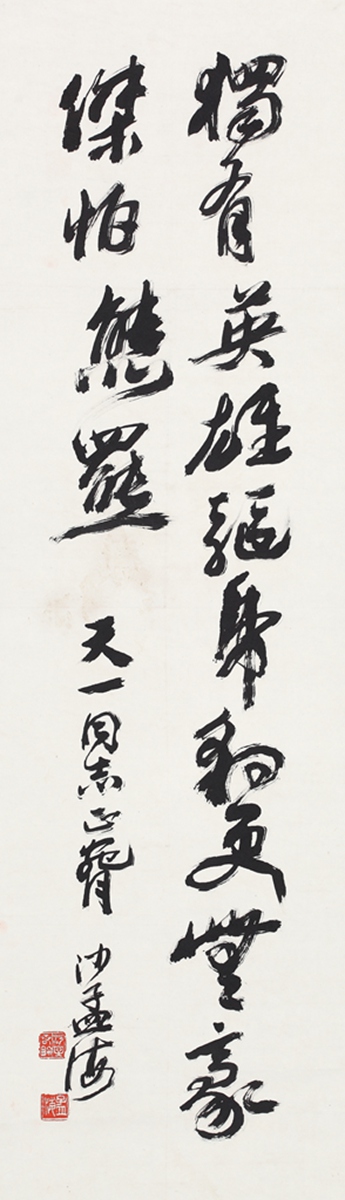 獨有英雄驅虎豹更無豪
傑怕熊羆
天一同志正 沙孟海